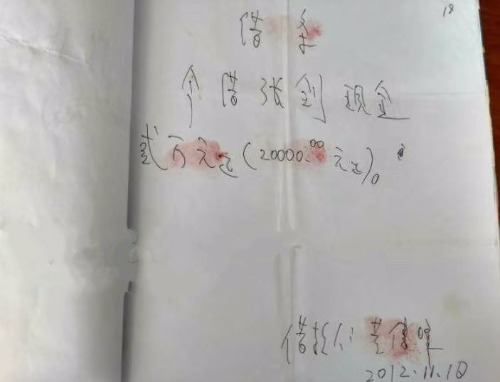 18
借条
今借张剑现金
贰万元正(20000.00元正)。
借款人
2012.11.18